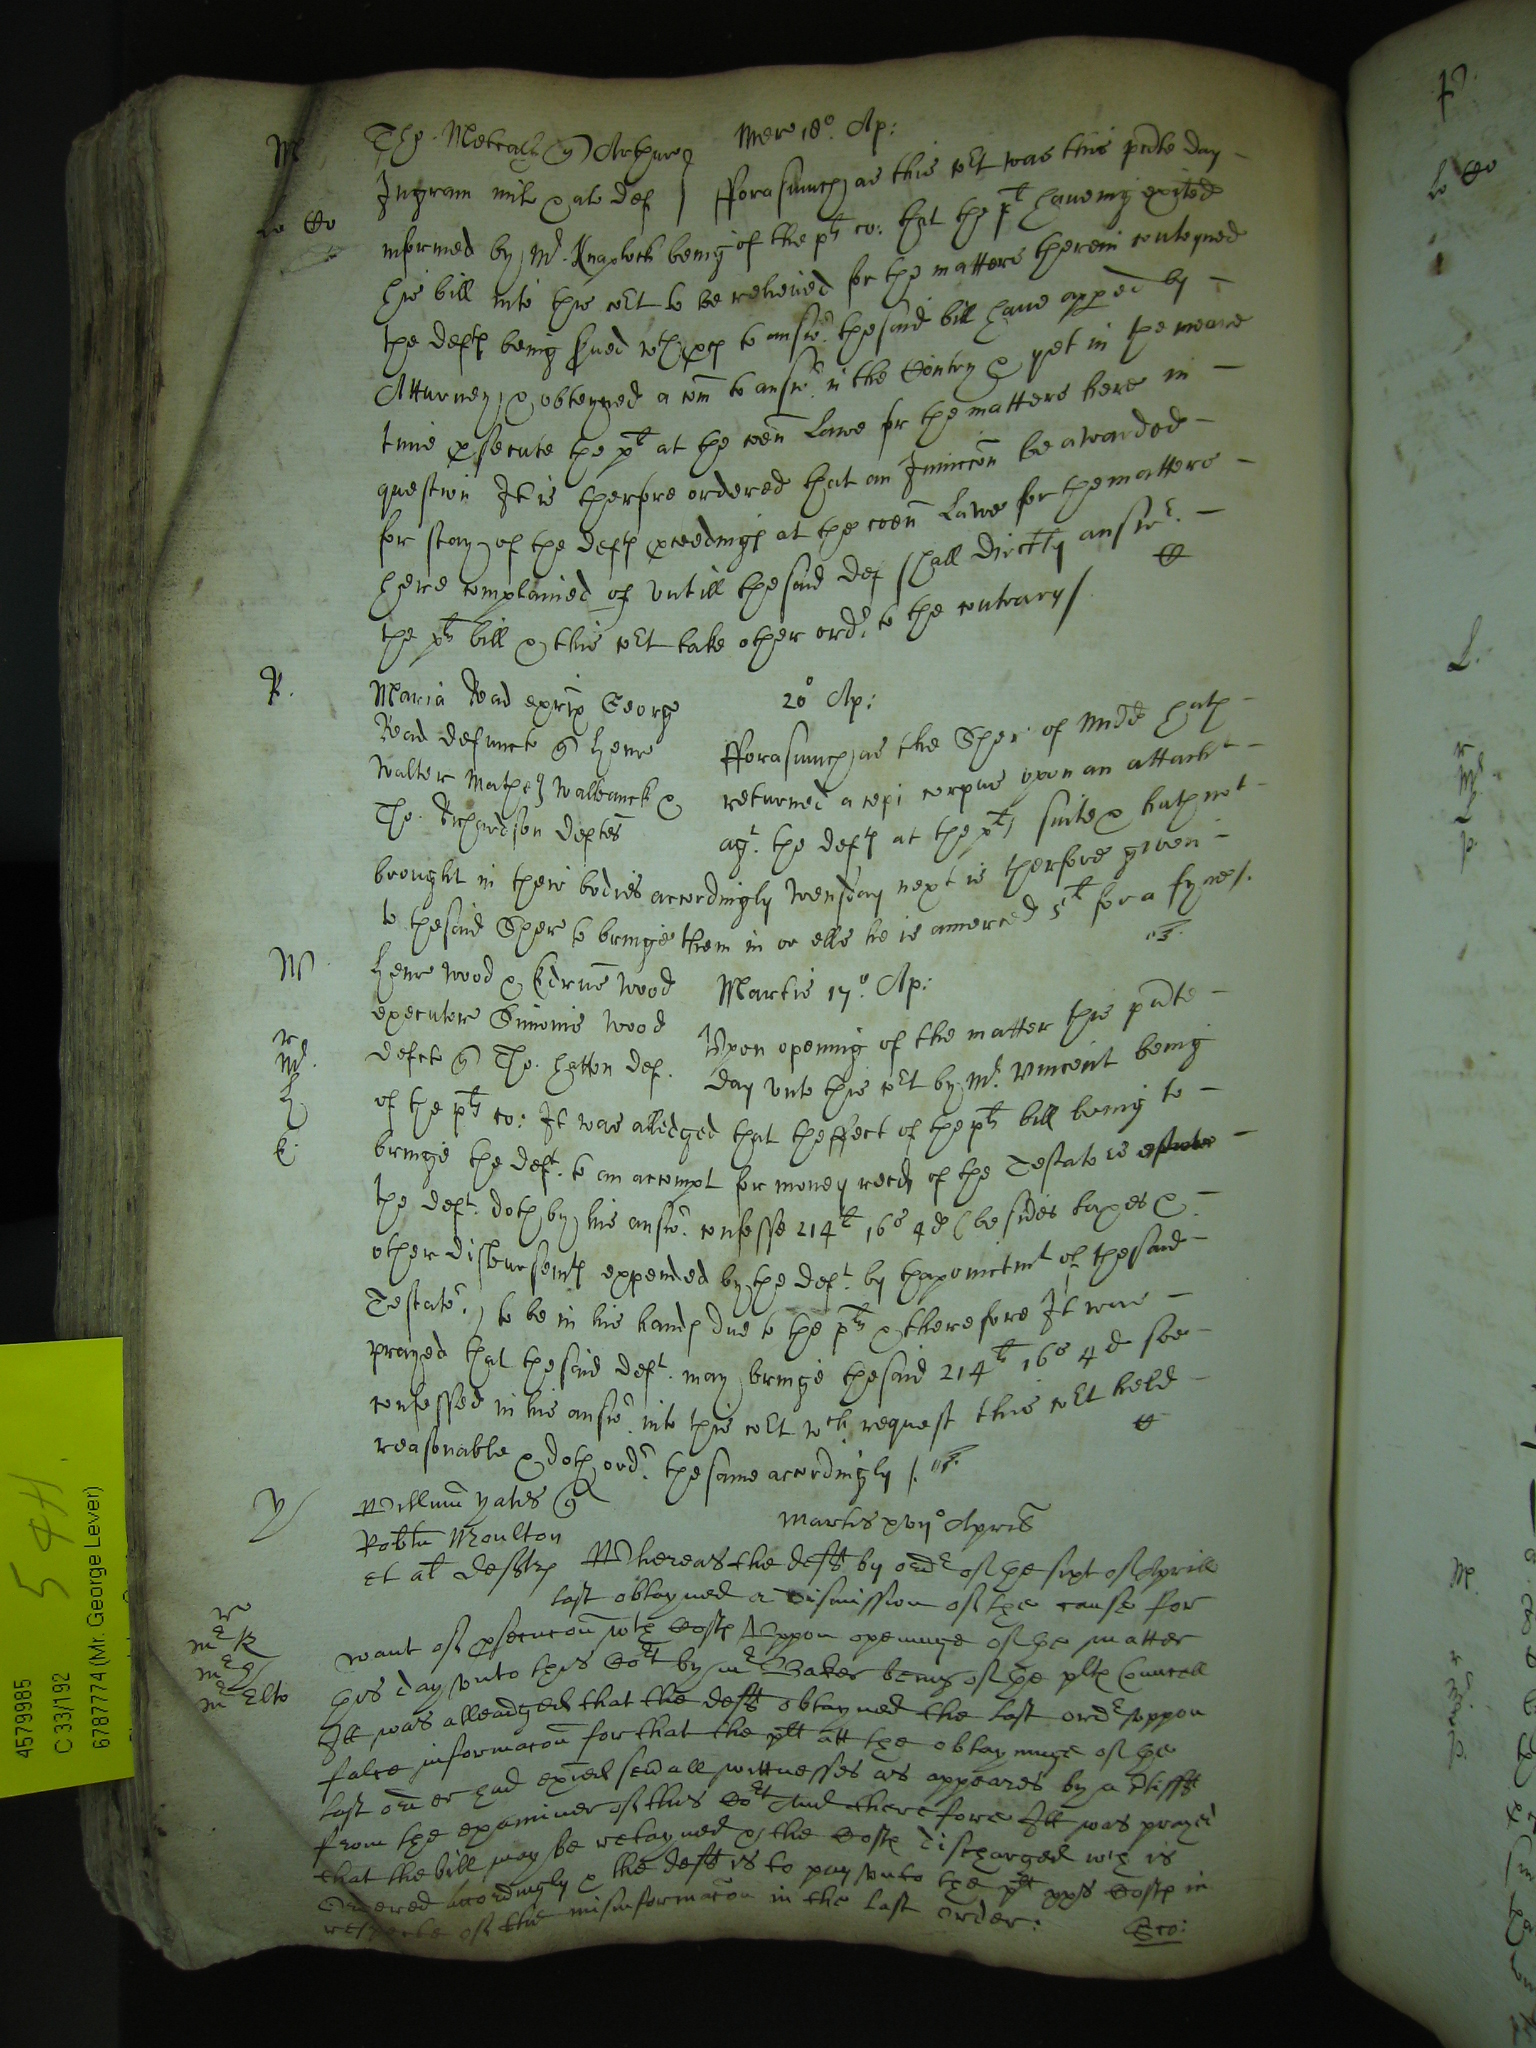 M Tho. Metcalf qr Arthure Mer 18o. Ap:
Ingram milit & al def fforasmuch as this cot was this pnte day
Lo Co informed by Mr. Knaplock being of the pts co: that the pt haveing exited
his bill into this cot to be relieved for the matters therein conteyned
the deftes being srued wth pces to answr. thesaid bill have appred by
Atturney & obteyned a com to answr. in the Contry & yet in the meane
time psecute the pt at the coen Lawe for the matters here in
question It is therfore ordered that an Iniuccon be awarded
for stay of the deftes pceedinges at the coen Lawe for the matters
here complained of untill the said def shall directly answr.
the pts bill & this cot take other ordr. to the contrary /
R. Maria Read exrix George 20o Ap:
Read defuncte qr Henr
fforasmuch as the Sher of Midd hath
Walter Mathei Walbanck &
returned a cepi corpus upon an attachmt
Tho. Richardson deftes
agt. the deftes at the pts suite & hath not
brought in their bodies accordingly wensday next is therfore given
to thesaid Sher to bringe them in or else he is amerced 5l for a fyne /.
W Henr Wood & Edrus Wood Martis 17o. Ap:
executor Simonis Wood
r Upon opening of the matter this pnte
Mr. defct qr Tho. Hatton def.
day unto this cot by Mr. Vincent being
H of the pts co: It was alledged that theffect of the pts bill being to
E. bringe the deft. to an accompt for money recd of the Testators estate
the deft. doth by his answr. confesse 214l 16s 4d (besides taxes &
other disbursemtes expended by the deft. by thapointmt of thesaid
Testator.) to be in his handes due to the pts & therefore It was
prayed that thesaid deft. may bringe thesaid 214l 16s 4d soe
confessed in his answr. into this cot wch request this cot held
reasonable & doth ordr. the same accordingly /.
Y Willmus Yates qr
Martis xvijo Apris
Robtu Moulton
et al defts Whereas the defts by ordr of the sixt of Aprill
last obtayned a dismission of the cause for
want of psecucon wth Costes Uppon openinge of the matter
mr R this day unto this Cort by mr Baker being of the pltes Councell
mr Elto Itt was alleadged that the defts obtayned the last ordr uppon
false informacon for that the plt att the obtayninge of the
last order had exied sevall wittnesses as appeares by a Certifft
from the examiner of this Cort And therefore Itt was prayed
that the bill may be retayned & the Costes discharged wch is
Ordered accordingly & the deft is to pay unto the plt xxs Costes in
respecte of the misinformacon in the last order:
4579985
C 33/192
6787774 (Mr. George Lever)